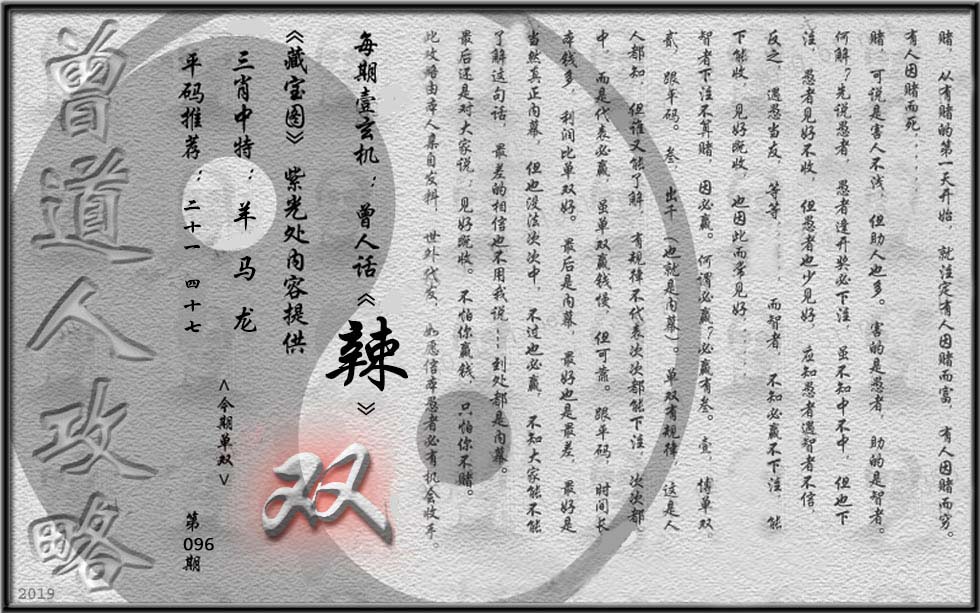 赌，从有赌的第一天开始，就注定有人因赌而富，有人因赌而穷。
有人因赌而死．．．．．
赌，可说是害人不浅，但助人也多。害的是愚者，助的是智者。
何解？先说愚者，愚者逢开奖必下注，虽不知中不中，但也下
注，愚者见好不收，但愚者也少见好，应知愚者遇智者不信，
反之，遇愚当友，等等．．．．．而智者，不知必赢不下注，能
下能收，见好既收，也因此而常见好．．．．
智者下注不算赌，因必赢。何谓必赢？必赢有叁。壹，博单双，
贰，跟平码。叁，出千（也就是内幕）。单双有规律，这是人
人都知，但谁又能了解，有规律不代表次次都能下注，次次都
中，而是代表必赢，虽单双赢钱慢，但可靠。跟平码，时间长，
本钱多，利润比单双好。最后是内幕，最好也是最差，最好是
当然真正内幕，但也没法次次中，不过也必赢，不知大家能不能
了解这句话，最差的相信也不用我说……到处都是内幕。
最后还是对大家说：见好既收。不怕你赢钱，只怕你不赌。
此攻略由本人集自发料，世外代友，如愿信本愚者必有机会收手。
每期壹玄机：曾人话《辣》
《藏宝图》紫光处内容提供
双
三肖中特：羊 马 龙
<今期单双>
平码推荐：二十一 四十七
第096期
曾道人攻略
2019